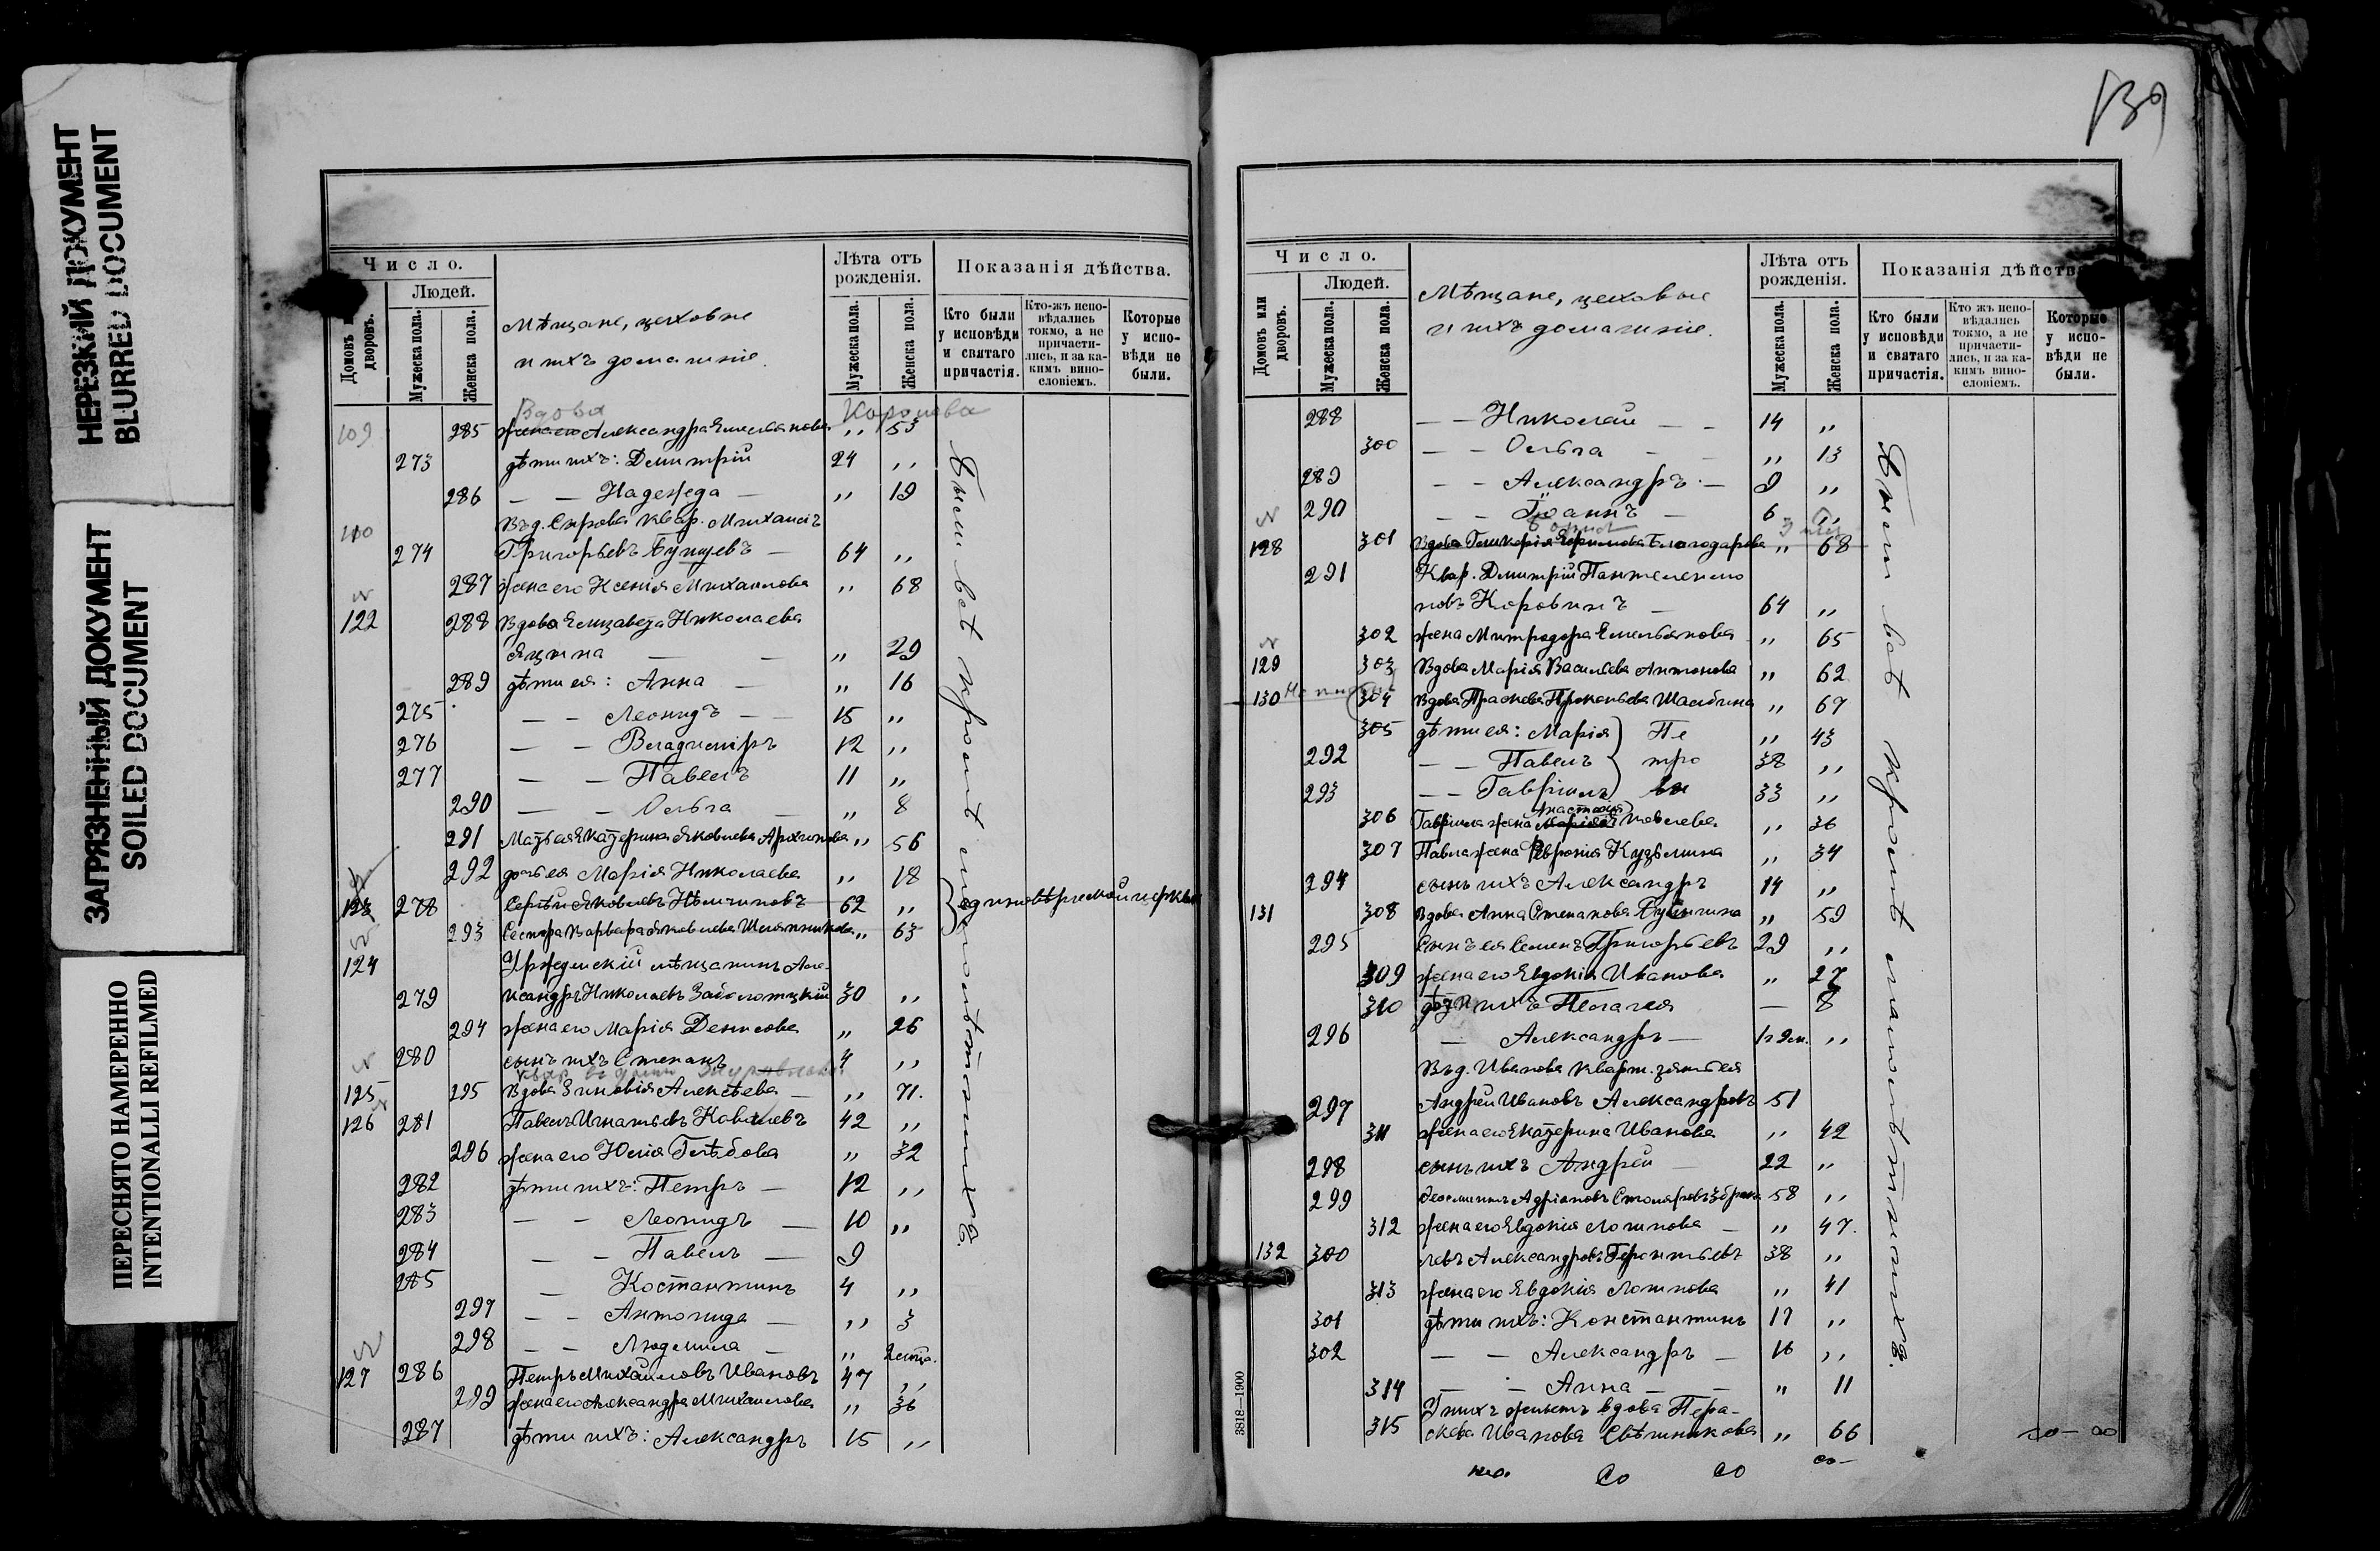 НЕРЕЗКИЙ ДОКУМЕНТ
BLURRED DOCUMENT
ЗАГРЯЗНЕННЫЙ ДОКУМЕНТ
SOILED DOCUMENT
ПЕРЕСНЯТО НАМЕРЕННО
INTENTIONALLI REFILMED
Число.
Людей.
Домовъ
дворовъ.
Мужеска пола.
Женска пола.
Мѣщане, цеховые
и ихъ домашніе.
Лѣта отъ
рожденія.
Мужеска пола.
Женска пола.
Показанія дѣйства.
Кто были
у исповѣди
и святаго
причастія.
Кто-жъ испо-
вѣдались
токмо, а не
причасти-
лись, и за ка-
кимъ вино-
словіемъ.
Которые
у испо-
вѣди не
были.
Вдова
109 285 жена его Александра Емельянова „ 53
273 дѣти ихъ: Димитрій 24 „
286 — — Надежда — „ 19
110 Въ д. Сирова квар. Михаилъ
274 Григорьевъ 64 „
287 жена его Ксенія Михаилова „ 68
122 288 Вдова Елизавета Николаева
„ 29
289 дѣти ея: Анна — „ 16
275 — — Леонидъ — — 15 „
276 — — Владиміръ 12 „
277 — — Павелъ 11 „
290 — — Ольга „ 8
291 Мать ея Екатерина Яковлева Архипова „ 56
292 дочь ея Марія Николаева „ 18
123 278 Сергѣй Яковлевъ 62 „ единовѣрческой церкви
293 Сестра Варвара Яковлева „ 63
124 мѣщанинъ Але-
279 ксандръ Николаевъ Заболотцкій 30 „
294 жена его Марія Денисова „ 26
280 сынъ ихъ Степанъ 4 „
125 295 Вдова Зиновія Алексѣева — „ 71.
126 281 Павелъ Игнатьевъ 42 „
296 жена его Юлія Глѣбова „ 32
282 дѣти ихъ: Петръ — 12 „
283 — — Леонидъ — 10 „
284 — — Павелъ — 9
285 — Костантинъ 4 „
297 — — Антонида — „ 3
298 — — Людмила — „
127 286 Петръ Михаиловъ Ивановъ 47 „
299 жена его Александра Михаилова „ 36
287 дѣти ихъ: Александръ 15 „
Были всѣ кромѣ малолѣтнихъ.
139
Число.
Людей.
Домовъ или
дворовъ.
Мужеска пола.
Женска пола.
Мѣщане, цеховые
и ихъ домашніе.
Лѣта отъ
рожденія.
Мужеска пола.
Женска пола.
Показанія дѣйств
Кто были
у исповѣди
и святаго
причастія.
Кто жъ испо-
вѣдались
токмо, а не
причасти-
лись, и за ка-
кимъ вино-
словіемъ.
Которые
у испо-
вѣди не
были.
288 — — Николай — — 14 „
300 — — Ольга — — „ 13
289 — — Александръ — 9 „
290 — — Іоаннъ — 6 „
128 301 Вдова Гликерія Благодарова „ 68
291 Квар. Димитрій Пантелеимо
новъ Коровинъ — 64 „
302 жена Митродора Емельянова „ 65
129 303 Вдова Марія Васильева Антонова „ 62
130 304 Вдова Праскева Прокопьева „ 67
305 дѣти ея: Марія Пе „ 43
292 — — Павелъ тро 38 „
293 — — Гавріилъ вы 33 „
306 Гавріила жена Марія „ 36
307 Павла жена Февронія Кузьмина „ 34
294 сынъ ихъ Александръ 14 „
131 308 Вдова Анна Степанова „ 59
295 Сынъ ея Семенъ Григорьевъ 29 „
309 жена его Евдокія Иванова „ 27
310 дѣти ихъ Пелагея — 8
296 — Александръ —
Въ д. Иванова кварт. зять ея
297 Андрей Ивановъ Александровъ 51
311 жена его Екатерина Иванова „ 42
298 сынъ ихъ Андрей — 22 „
299 58 „
312 жена его Евдокія Логинова — „ 47.
132 300 Левъ Александровъ Геронтьевъ 38 „
313 жена его Евдокія Логинова „ 41
301 дѣти ихъ: Константинъ 17 „
302 — — Александръ — 16 „
314 — — Анна — — „ 11
У нихъ живетъ вдова Пера-
315 скева Иванова Свѣшникова „ 66
Были всѣ кромѣ малолѣтнихъ.
3818—1900